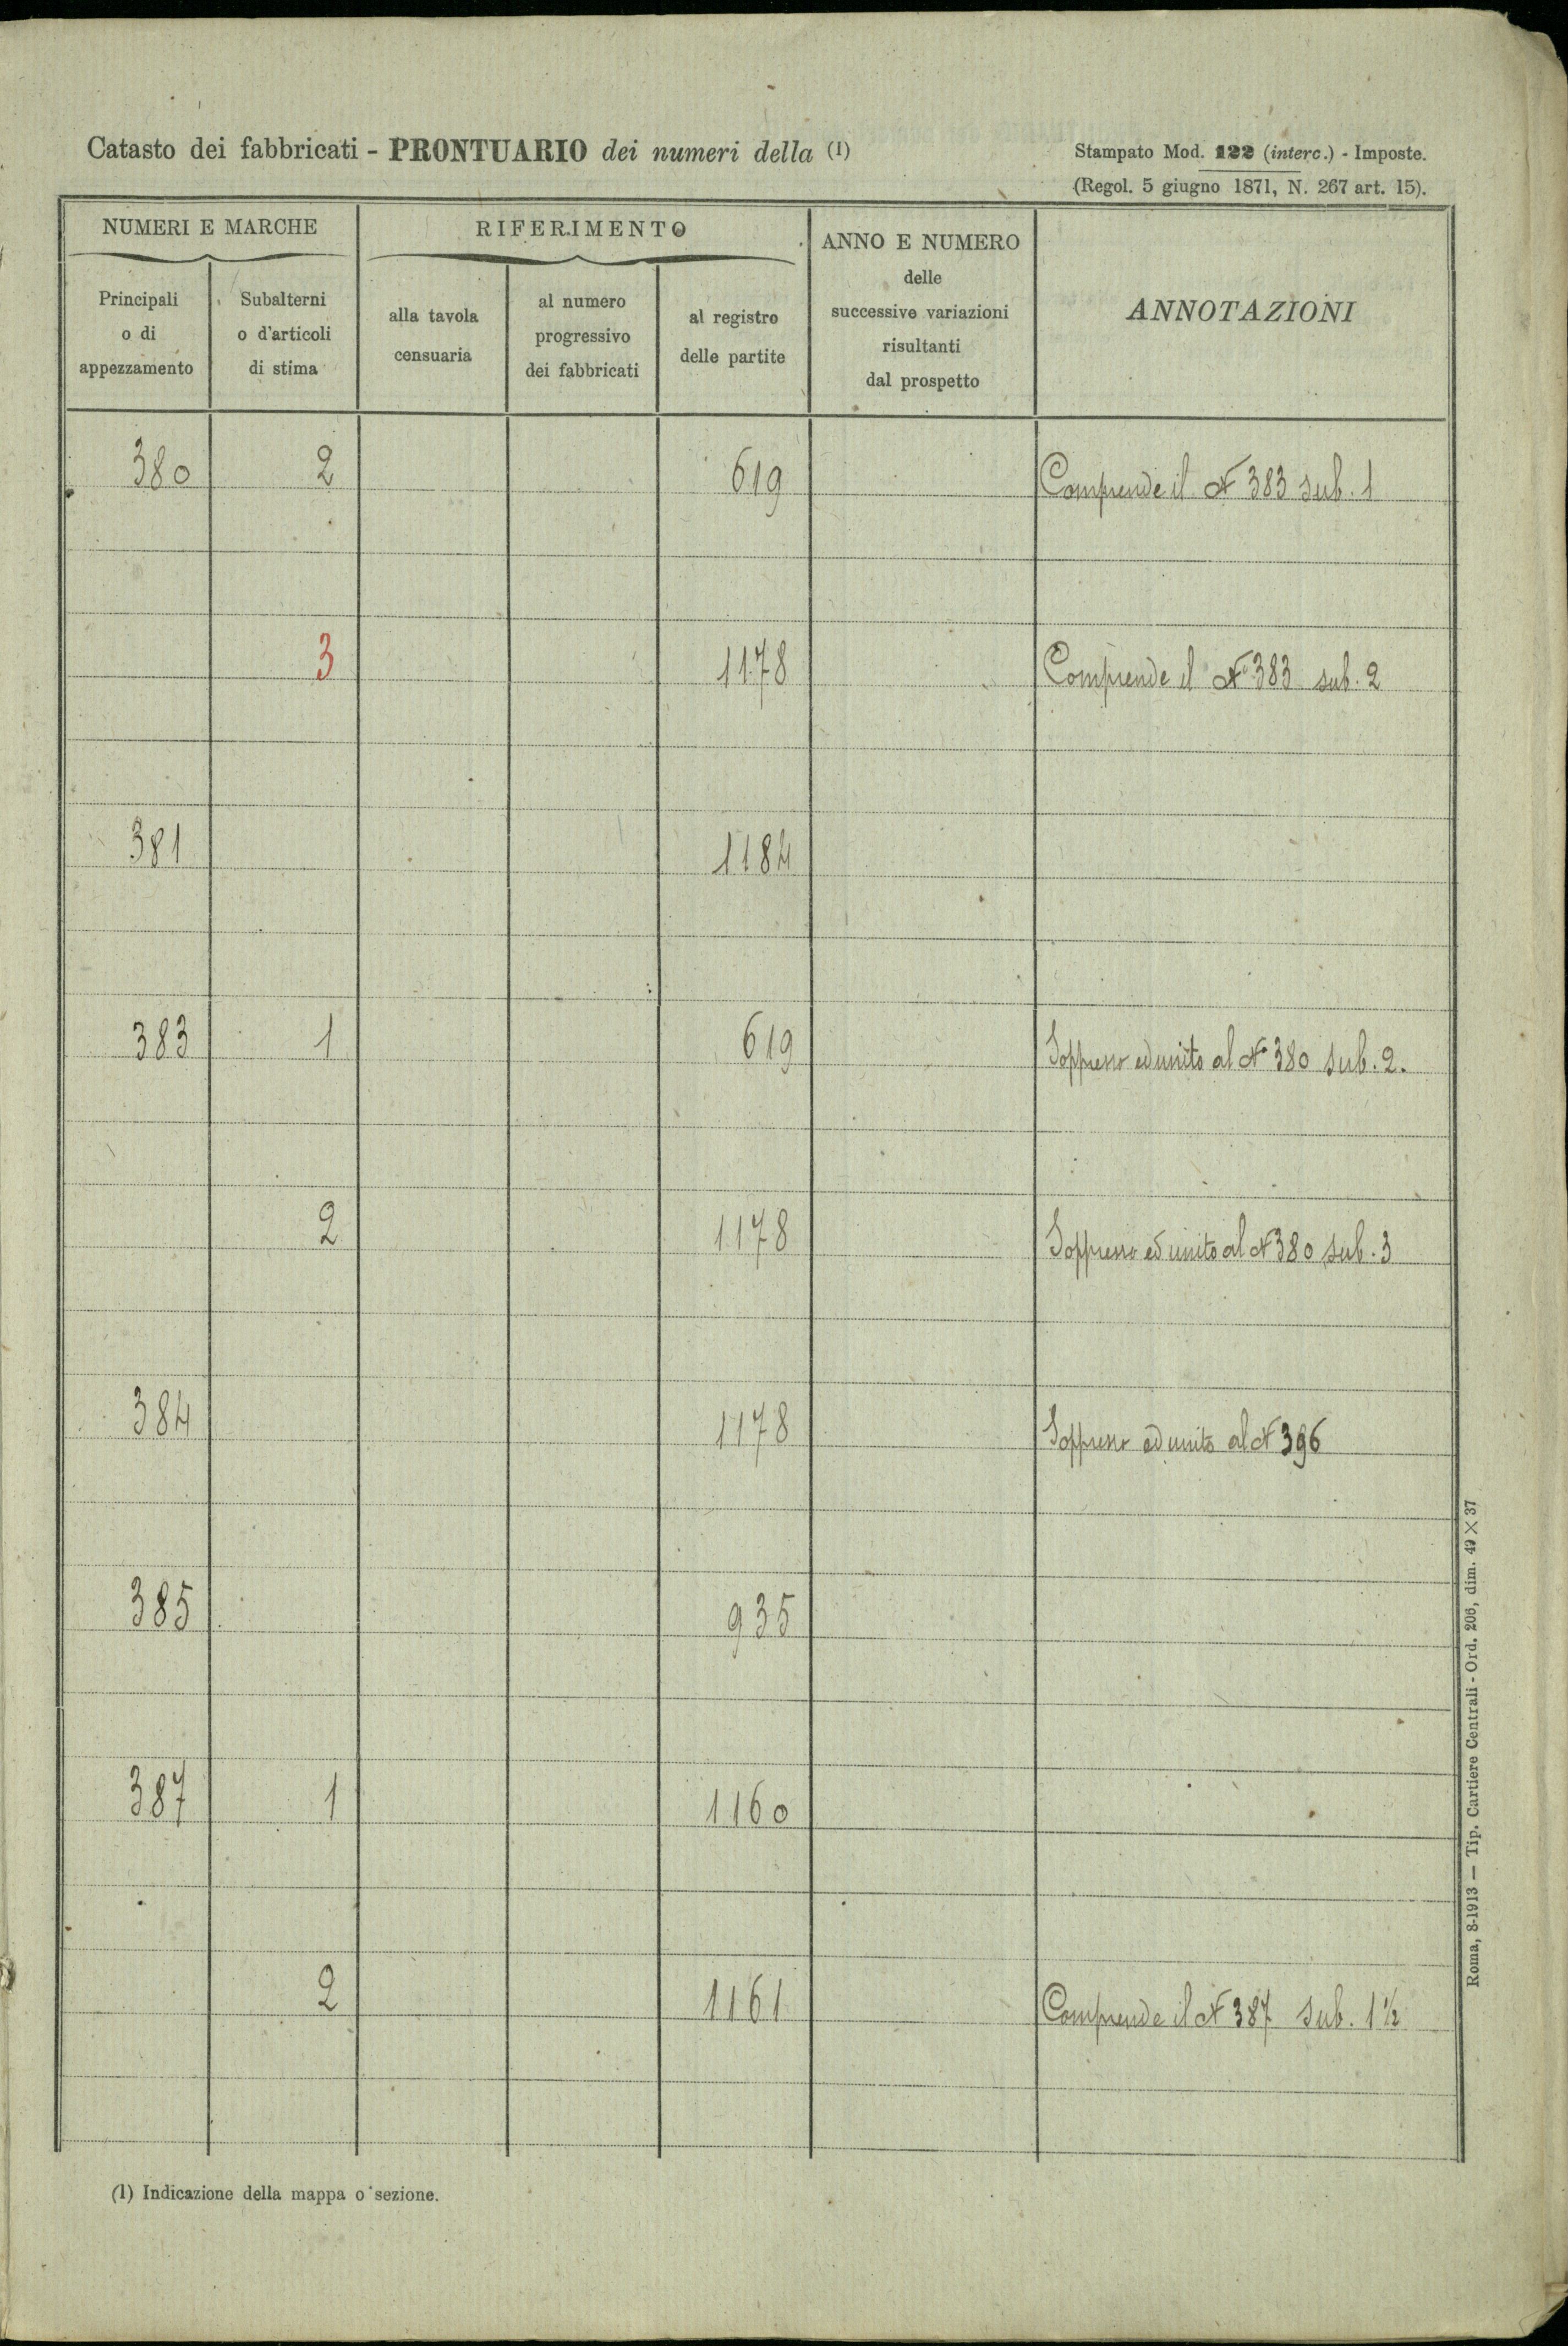 Catasto dei fabbricati - PRONTUARIO dei numeri della (1)
Stampato Mod. 122 (interc.) - Imposte.
(Regol. 5 giugno 1871, N. 267 art. 15).
NUMERI E MARCHE
RIFERIMENTO
ANNO E NUMERO
delle
successive variazioni
risultanti
dal prospetto
ANNOTAZIONI
Principali
o di
appezzamento
Subalterni
o d'articoli
di stima
alla tavola
censuaria
al numero
progressivo
dei fabbricati
al registro
delle partite
380 2 619 Comprende il N° 383 sub. 1
3 1178 Comprende il N° 383 sub. 2
381 1184
383 1 619 Soppresso ed unito al N° 380 sub. 2.
2 1178 Soppresso ed unito al N° 380 sub. 3
384 1178 Soppresso ed unito al N° 396
385 935
387 1 1160
2 1161 Comprende il N° 387 sub. 1 ½
(1) Indicazione della mappa o sezione.
Roma, 8-1913 — Tip. Cartiere Centrali - Ord. 206, dim. 49 × 37